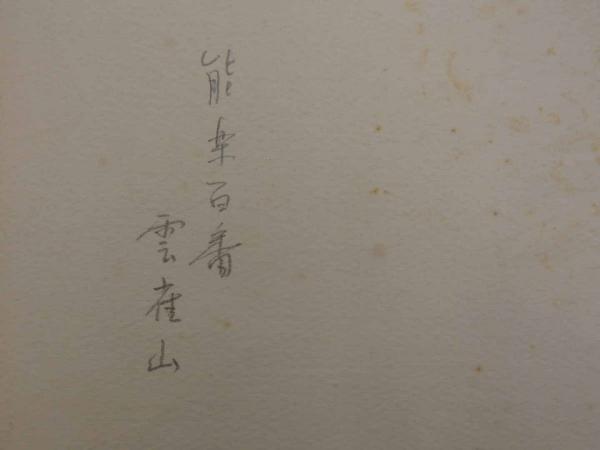 能楽百番
雲雀山